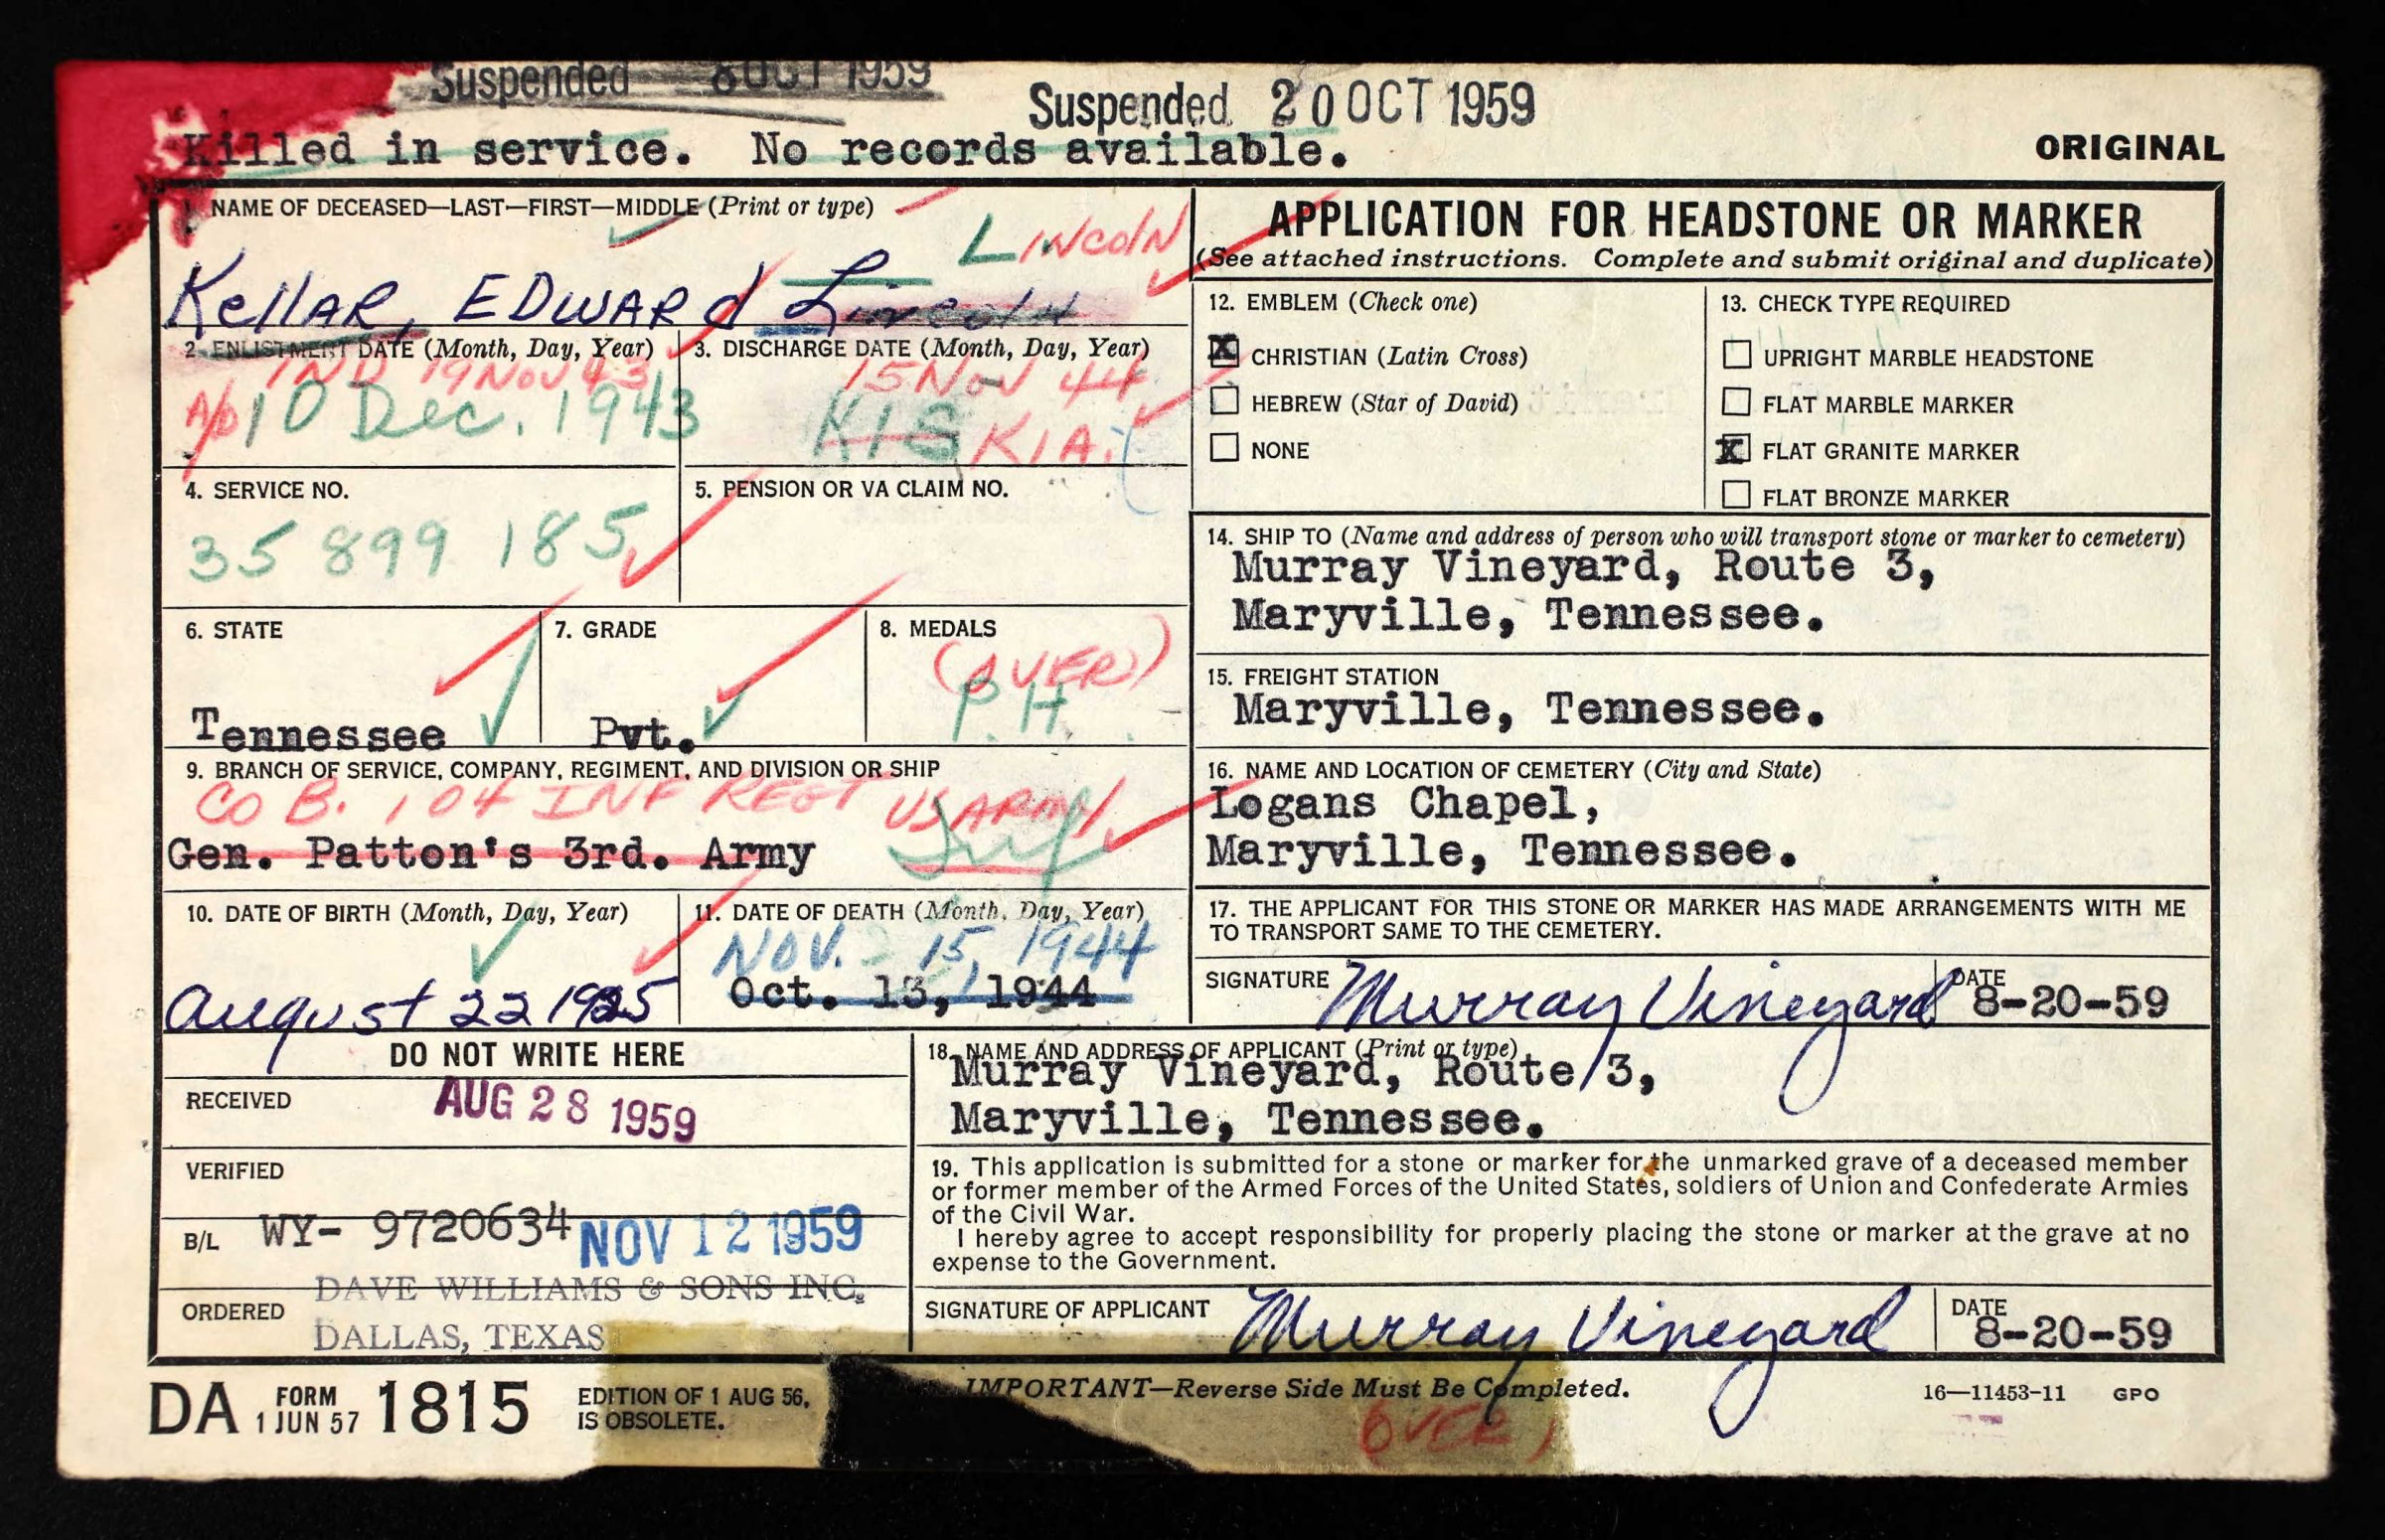 Suspended 8 OCT 1959
Suspended 20 OCT 1959
Killed in service. No records available.
ORIGINAL
1. NAME OF DECEASED—LAST—FIRST—MIDDLE (Print or type)
LINcolN
KellAR, EDWARd Lincoln
2. ENLISTMENT DATE (Month, Day, Year)
IND 19 Nov 43
A/D 10 Dec. 1943
3. DISCHARGE DATE (Month, Day, Year)
15 Nov 44
KIS KIA.
4. SERVICE NO.
35 899 185
5. PENSION OR VA CLAIM NO.
6. STATE
Tennessee
7. GRADE
Pvt.
8. MEDALS
(OVER)
P.H.
9. BRANCH OF SERVICE, COMPANY, REGIMENT, AND DIVISION OR SHIP
CO B. 104 INF REGT US ARMY
Gen. Patton's 3rd. Army Inf
10. DATE OF BIRTH (Month, Day, Year)
August 22 1925
11. DATE OF DEATH (Month, Day, Year)
NOV. 15, 1944
Oct. 13, 1944
DO NOT WRITE HERE
RECEIVED
AUG 28 1959
VERIFIED
B/L WY- 9720634 NOV 12 1959
DAVE WILLIAMS & SONS INC.
ORDERED
DALLAS, TEXAS
APPLICATION FOR HEADSTONE OR MARKER
(See attached instructions. Complete and submit original and duplicate)
12. EMBLEM (Check one)
X CHRISTIAN (Latin Cross)
HEBREW (Star of David)
NONE
13. CHECK TYPE REQUIRED
UPRIGHT MARBLE HEADSTONE
FLAT MARBLE MARKER
X FLAT GRANITE MARKER
FLAT BRONZE MARKER
14. SHIP TO (Name and address of person who will transport stone or marker to cemetery)
Murray Vineyard, Route 3,
Maryville, Tennessee.
15. FREIGHT STATION
Maryville, Tennessee.
16. NAME AND LOCATION OF CEMETERY (City and State)
Logans Chapel,
Maryville, Tennessee.
17. THE APPLICANT FOR THIS STONE OR MARKER HAS MADE ARRANGEMENTS WITH ME
TO TRANSPORT SAME TO THE CEMETERY.
SIGNATURE Murray Vineyard DATE 8-20-59
18. NAME AND ADDRESS OF APPLICANT (Print or type)
Murray Vineyard, Route 3,
Maryville, Tennessee.
19. This application is submitted for a stone or marker for the unmarked grave of a deceased member
or former member of the Armed Forces of the United States, soldiers of Union and Confederate Armies
of the Civil War.
I hereby agree to accept responsibility for properly placing the stone or marker at the grave at no
expense to the Government.
SIGNATURE OF APPLICANT Murray Vineyard DATE 8-20-59
DA FORM 1 JUN 57 1815
EDITION OF 1 AUG 56,
IS OBSOLETE.
IMPORTANT—Reverse Side Must Be Completed.
OVER)
16—11453-11 GPO